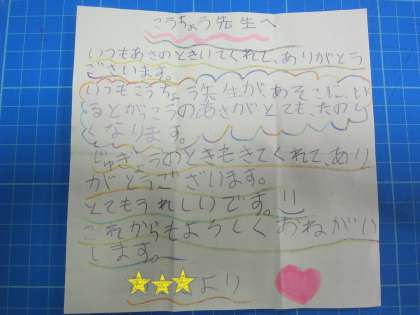 こうちょう先生へ
いつもあさのときいてくれて、ありがとう
ございます。
いつもこうちょう先生があそこにい
るとがっこうのあさがとても、たのし
くなります。
じゅぎょうのときもきてくれて、あり
がとうございます。
とてもうれしいです。
これからもよろしくおねがい
します。
より